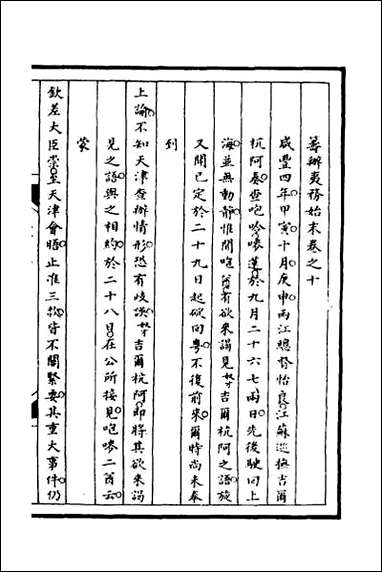 籌辦夷務始末卷之十
咸豐四年甲寅十月庚申兩江總督怡良江蘇巡撫吉爾
杭阿奏查咆呤嘜蓮於九月二十六七兩日先後駛回上
海並無動靜惟聞咆酋有欲來謁見奴才吉爾杭阿之語旋
又聞已定於二十九日起碇回粵不復前來爾時尚未奉
到
上諭不知天津查辦情形恐有歧誤奴才吉爾杭阿即將其欲來謁
見之語與之相約於二十八日在公所接見咆嘜二酋云
蒙
欽差大臣崇至天津會晤止准三款皆不關緊要其重大事件仍